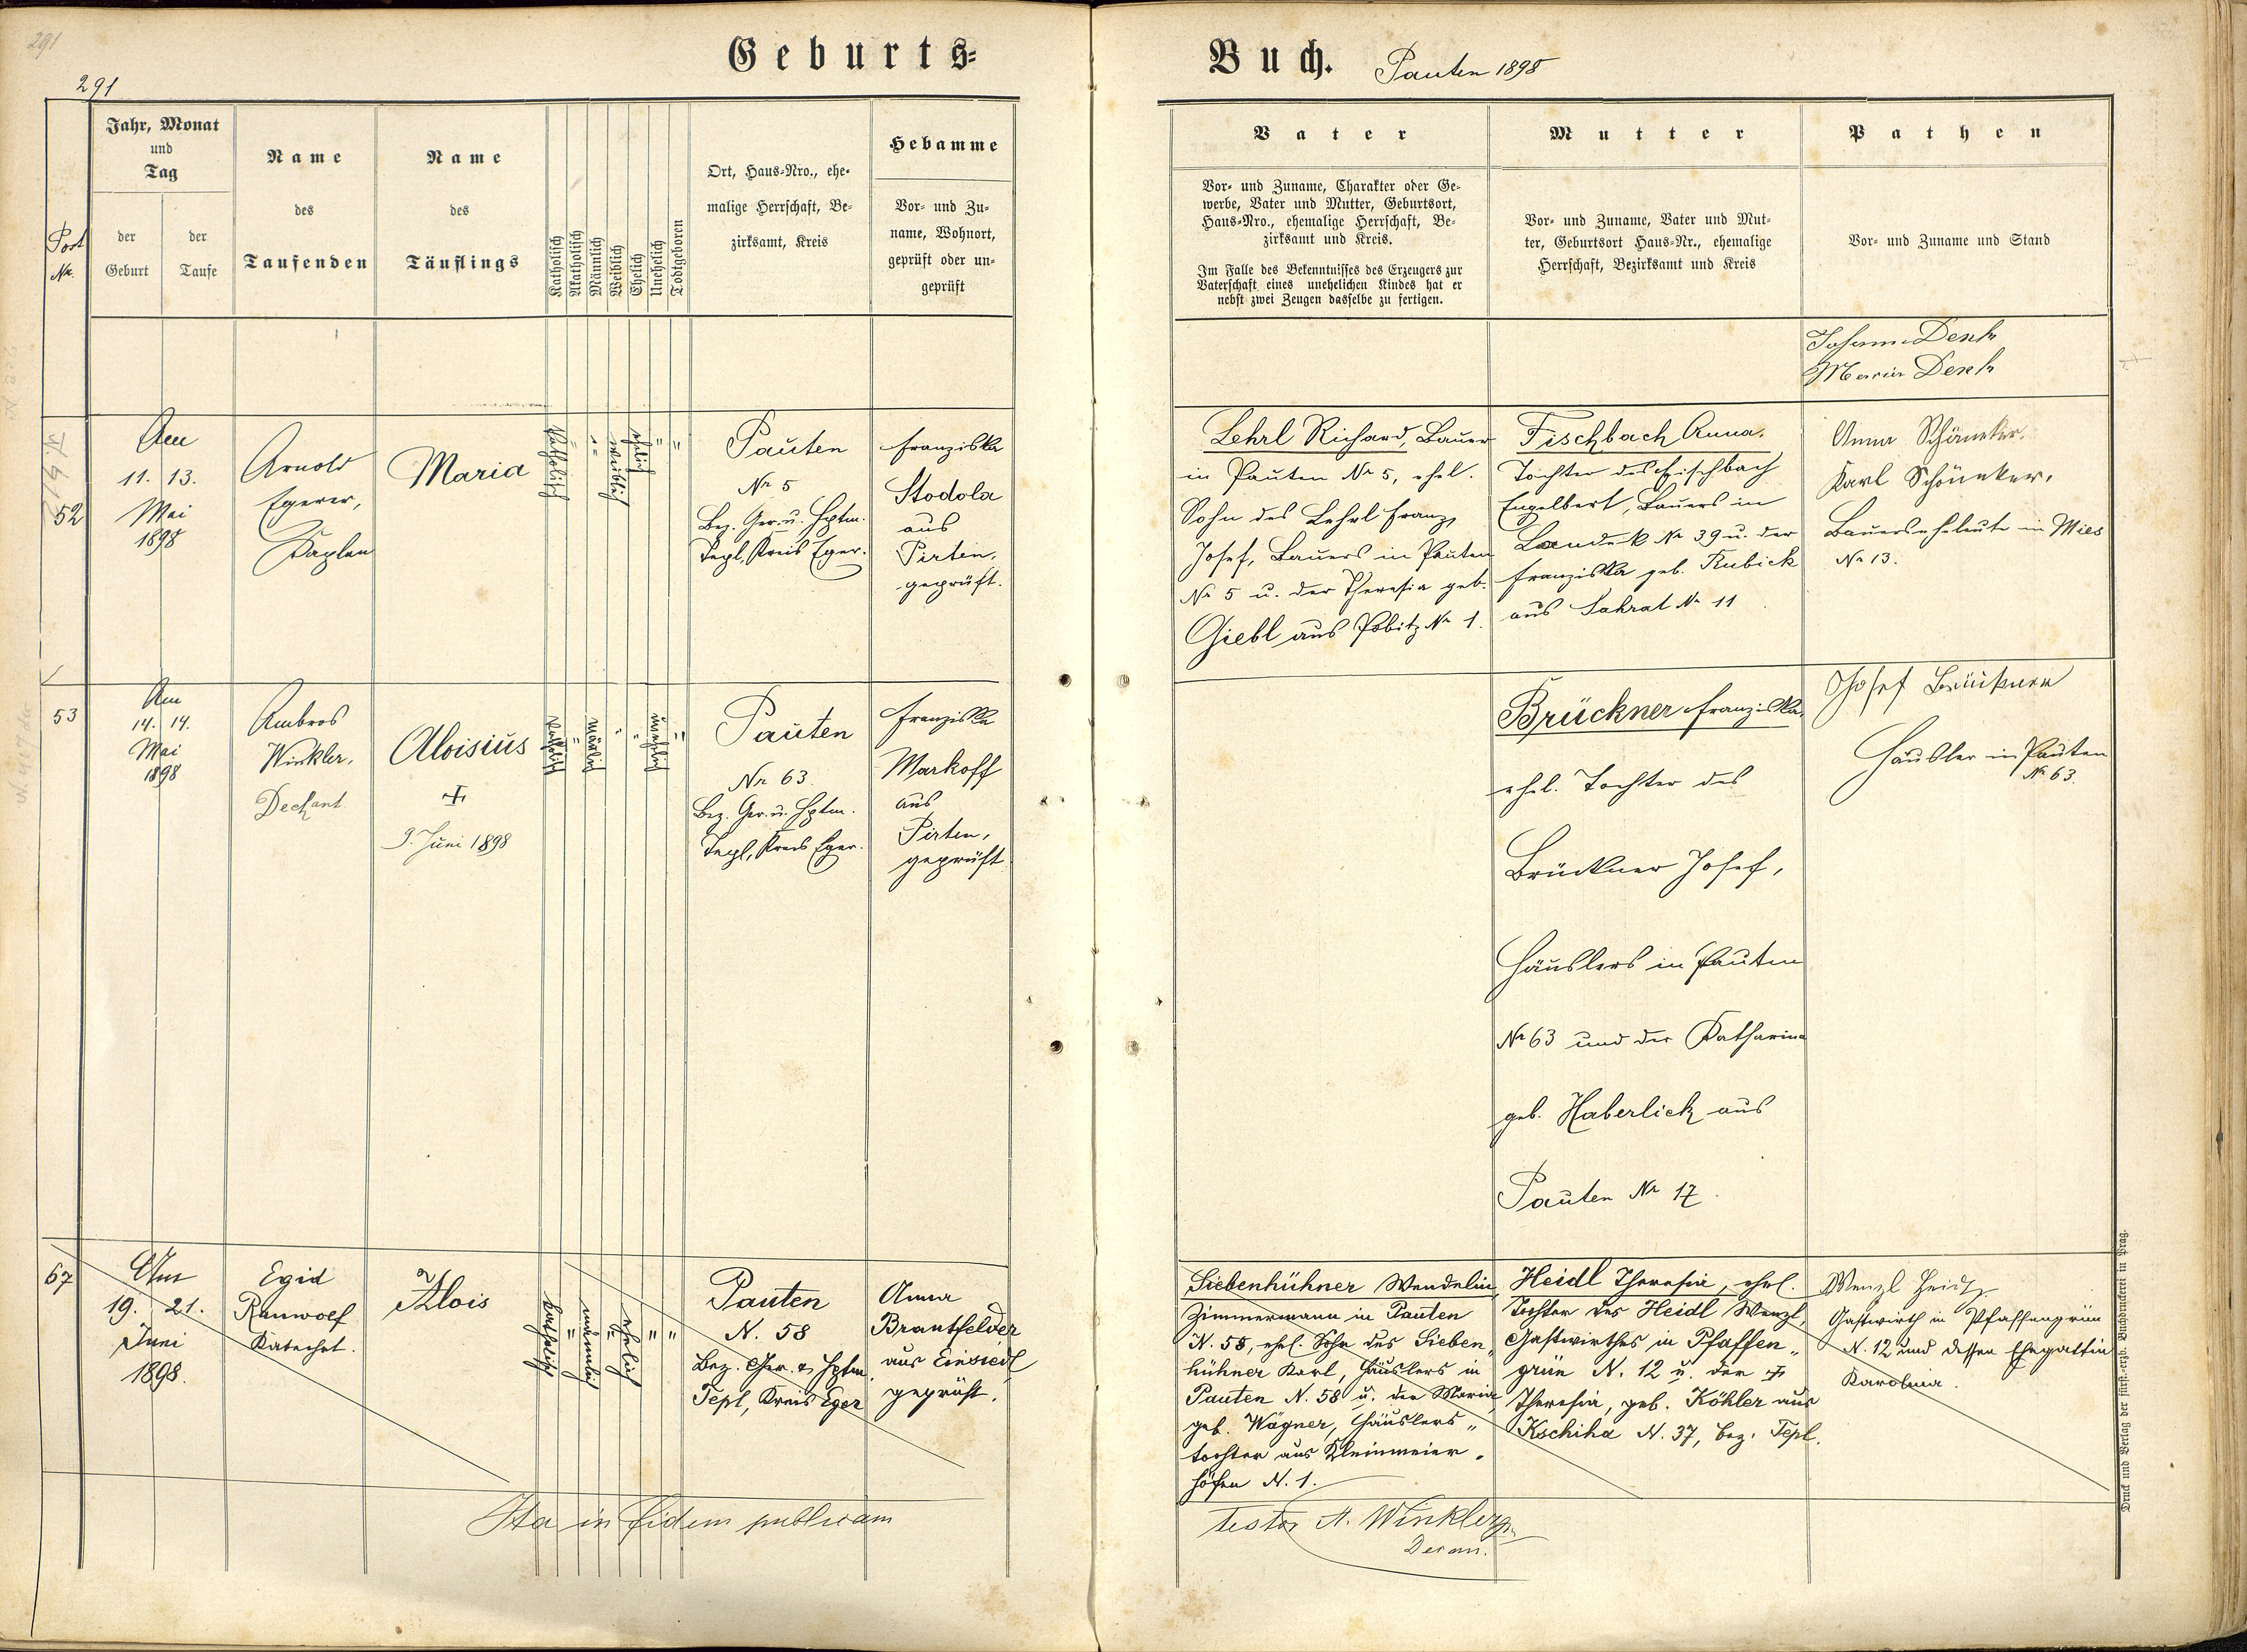 291
291
Geburts=
Buch.
Pauten 1898
Post
Nr.
Jahr, Monat
und
Tag
der
Geburt
der
Taufe
Name
des
Taufenden
Name
des
Täuflings
Katholisch
Akatholisch
Männlich
Weiblich
Ehelich
Unehelich
Todtgeboren
Ort, Haus=Nro., ehe=
malige Herrschaft, Be=
zirksamt, Kreis
Hebamme
Vor= und Zu=
name, Wohnort,
geprüft oder un=
geprüft
Vater
Vor= und Zuname, Charakter oder Ge=
werbe, Vater und Mutter, Geburtsort,
Haus=Nro., ehemalige Herrschaft, Be=
zirksamt und Kreis.
Im Falle des Bekenntnisses des Erzeugers zur
Vaterschaft eines unehelichen Kindes hat er
nebst zwei Zeugen dasselbe zu fertigen.
Mutter
Vor= und Zuname, Vater und Mut=
ter, Geburtsort Haus=Nr., ehemalige
Herrschaft, Bezirksamt und Kreis
Pathen
Vor= und Zuname und Stand
Johann Denk
Maria Denk
52
Am
11. 13.
Mai
1898
Arnold
Egerer,
Kaplan
Maria
katholisch
"
"
weiblich
ehelich
"
"
Pauten
Nr 5
Bez. Ger. u. Hptm.
Tepl, Kreis Eger.
Franziska
Stodola
aus
Pirten,
geprüft.
Lehrl Richard, Bauer
in Pauten Nr 5, ehel.
Sohn des Lehrl Franz
Josef, Bauers in Pauten
Nr 5 u. der Theresia geb.
Giebl aus Pobitz Nr 1.
Fischbach Anna.
Tochter des Fischbach
Engelbert, Bauers in
Landek Nr 39 u. der
Franziska geb. Kubick
aus Sahrat Nr 11
Anna Schöneker.
Karl Schöneker,
Bauerseheleute in Mies
Nr 13.
53
Am
14. 14.
Mai
1898
Ambros
Winkler,
Dechant
Aloisius
+
9. Juni 1898
katholisch
"
männlich
"
"
unehelich
"
Pauten
Nr 63
Bez. Ger. u. Hptm.
Tepl, Kreis Eger.
Franziska
Markoff
aus
Pirten,
geprüft
Brückner Franziska,
ehel. Tochter des
Brückner Josef,
Häuslers in Pauten
Nr 63 und der Katharina
geb. Haberlick aus
Pauten Nr 17.
Josef Brückner
Häusler in Pauten
Nr 63.
67
Am
19. 21.
Juni
1898.
Egid
Ranwolf
Katechet.
Alois
katholisch
"
männlich
"
ehelich
"
"
Pauten
N. 58
Bez. Ger. & Hptm.
Tepl, Kreis Eger
Anna
Brantfelder
aus Einsiedl
geprüft.
Siebenhühner Wendelin,
Zimmermann in Pauten
N. 58, ehel. Sohn des Sieben„
hühner Karl, Häuslers in
Pauten N. 58 u. der Maria
geb. Wagner, Häuslers„
tochter aus Kleinmeier„
höfen N. 1.
Heidl Theresia, ehel.
Tochter des Heidl Wenzl,
Gastwirthes in Pfaffen„
grün N. 12 u. der +
Theresia, geb. Köhler aus
Kschiha N. 37, Bez. Tepl.
Wenzl Heidl
Gastwirth in Pfaffengrün
N. 12 und dessen Ehegattin
Karolina.
Ita in fidem publicam
testor A. Winkler
Decan.
Druck und Verlag der fürst.=erzb. Buchdruckerei in Prag.